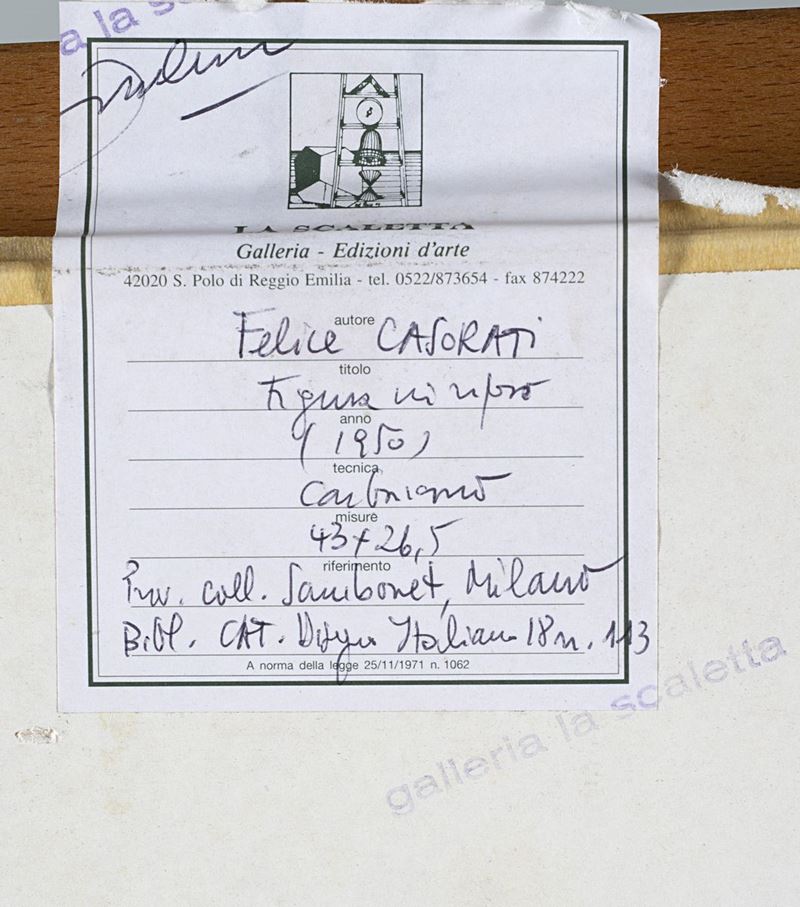 a la s
LA SCALETTA
Galleria - Edizioni d'arte
42020 S. Polo di Reggio Emilia - tel. 0522/873654 - fax 874222
autore
Felice CASORATI
titolo
Figura in riposo
anno
(1950)
tecnica
Carboncino
misure
43x26,5
riferimento
Prov. coll. Sambonet, Milano
Bibl. CAT. Disegno Italiano 18 n. 113
A norma della legge 25/11/1971 n. 1062
galleria la scaletta